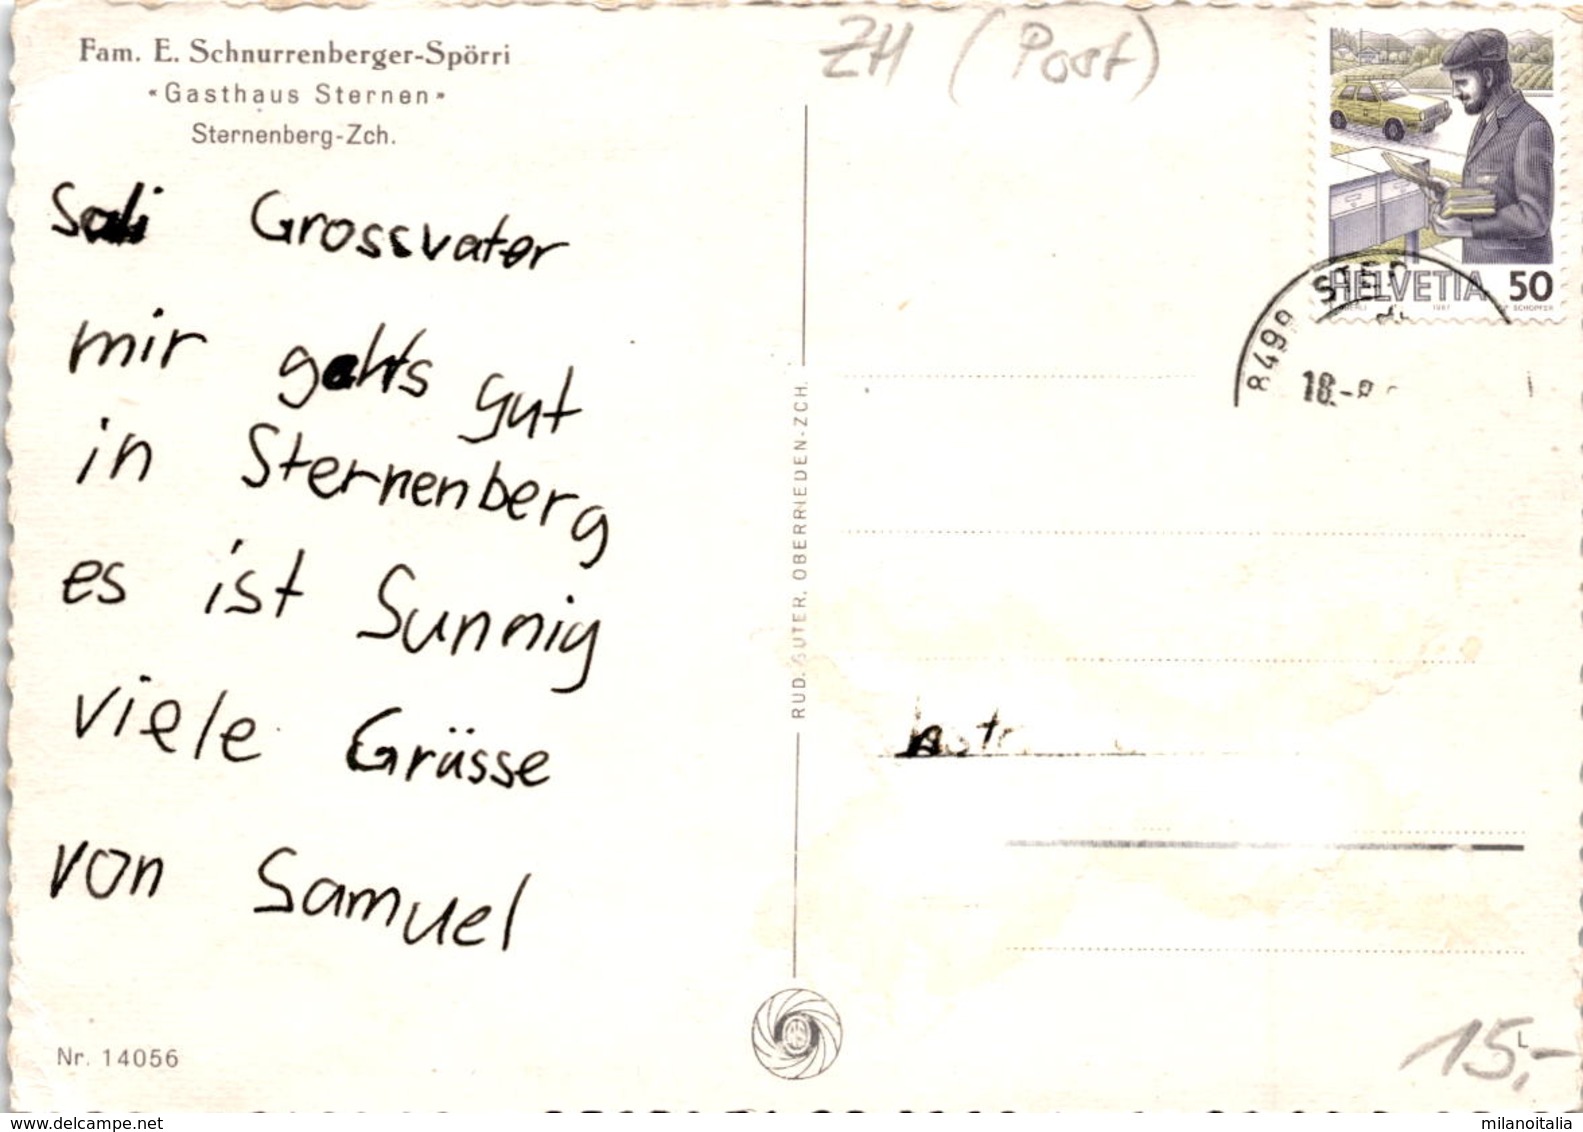 Fam. E. Schnurrenberger-Spörri
«Gasthaus Sternen»
Sternenberg-Zch.
Sali Grossvater
mir gehts gut
in Sternenberg
es ist Sunnig
viele Grüsse
von Samuel
Nr. 14056
RUD. SUTER, OBERRIEDEN-ZCH.
ZH (Post)
HELVETIA 50
1987
8499 STER
18.-
15,-
delcampe.net
milanoitalia